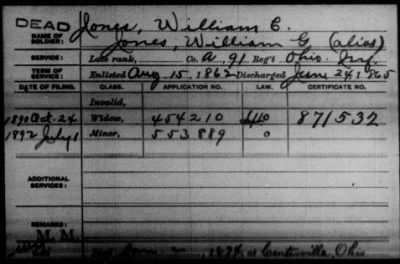 DEAD
NAME OF SOLDIER: Jones, William C.
Jones, William G (alias)
SERVICE: Late rank, Co. A, 91 Reg't Ohio Inf.
TERM OF SERVICE: Enlisted Aug 15, 1862 Discharged June 24 1865
DATE OF FILING. CLASS. APPLICATION NO. LAW. CERTIFICATE NO.
Invalid,
1890 Oct. 24 Widow, 454210 871532
1892 July 1 Minor, 553889 0
ADDITIONAL SERVICES:
REMARKS:
M.M.
2, at Centerville, Ohio